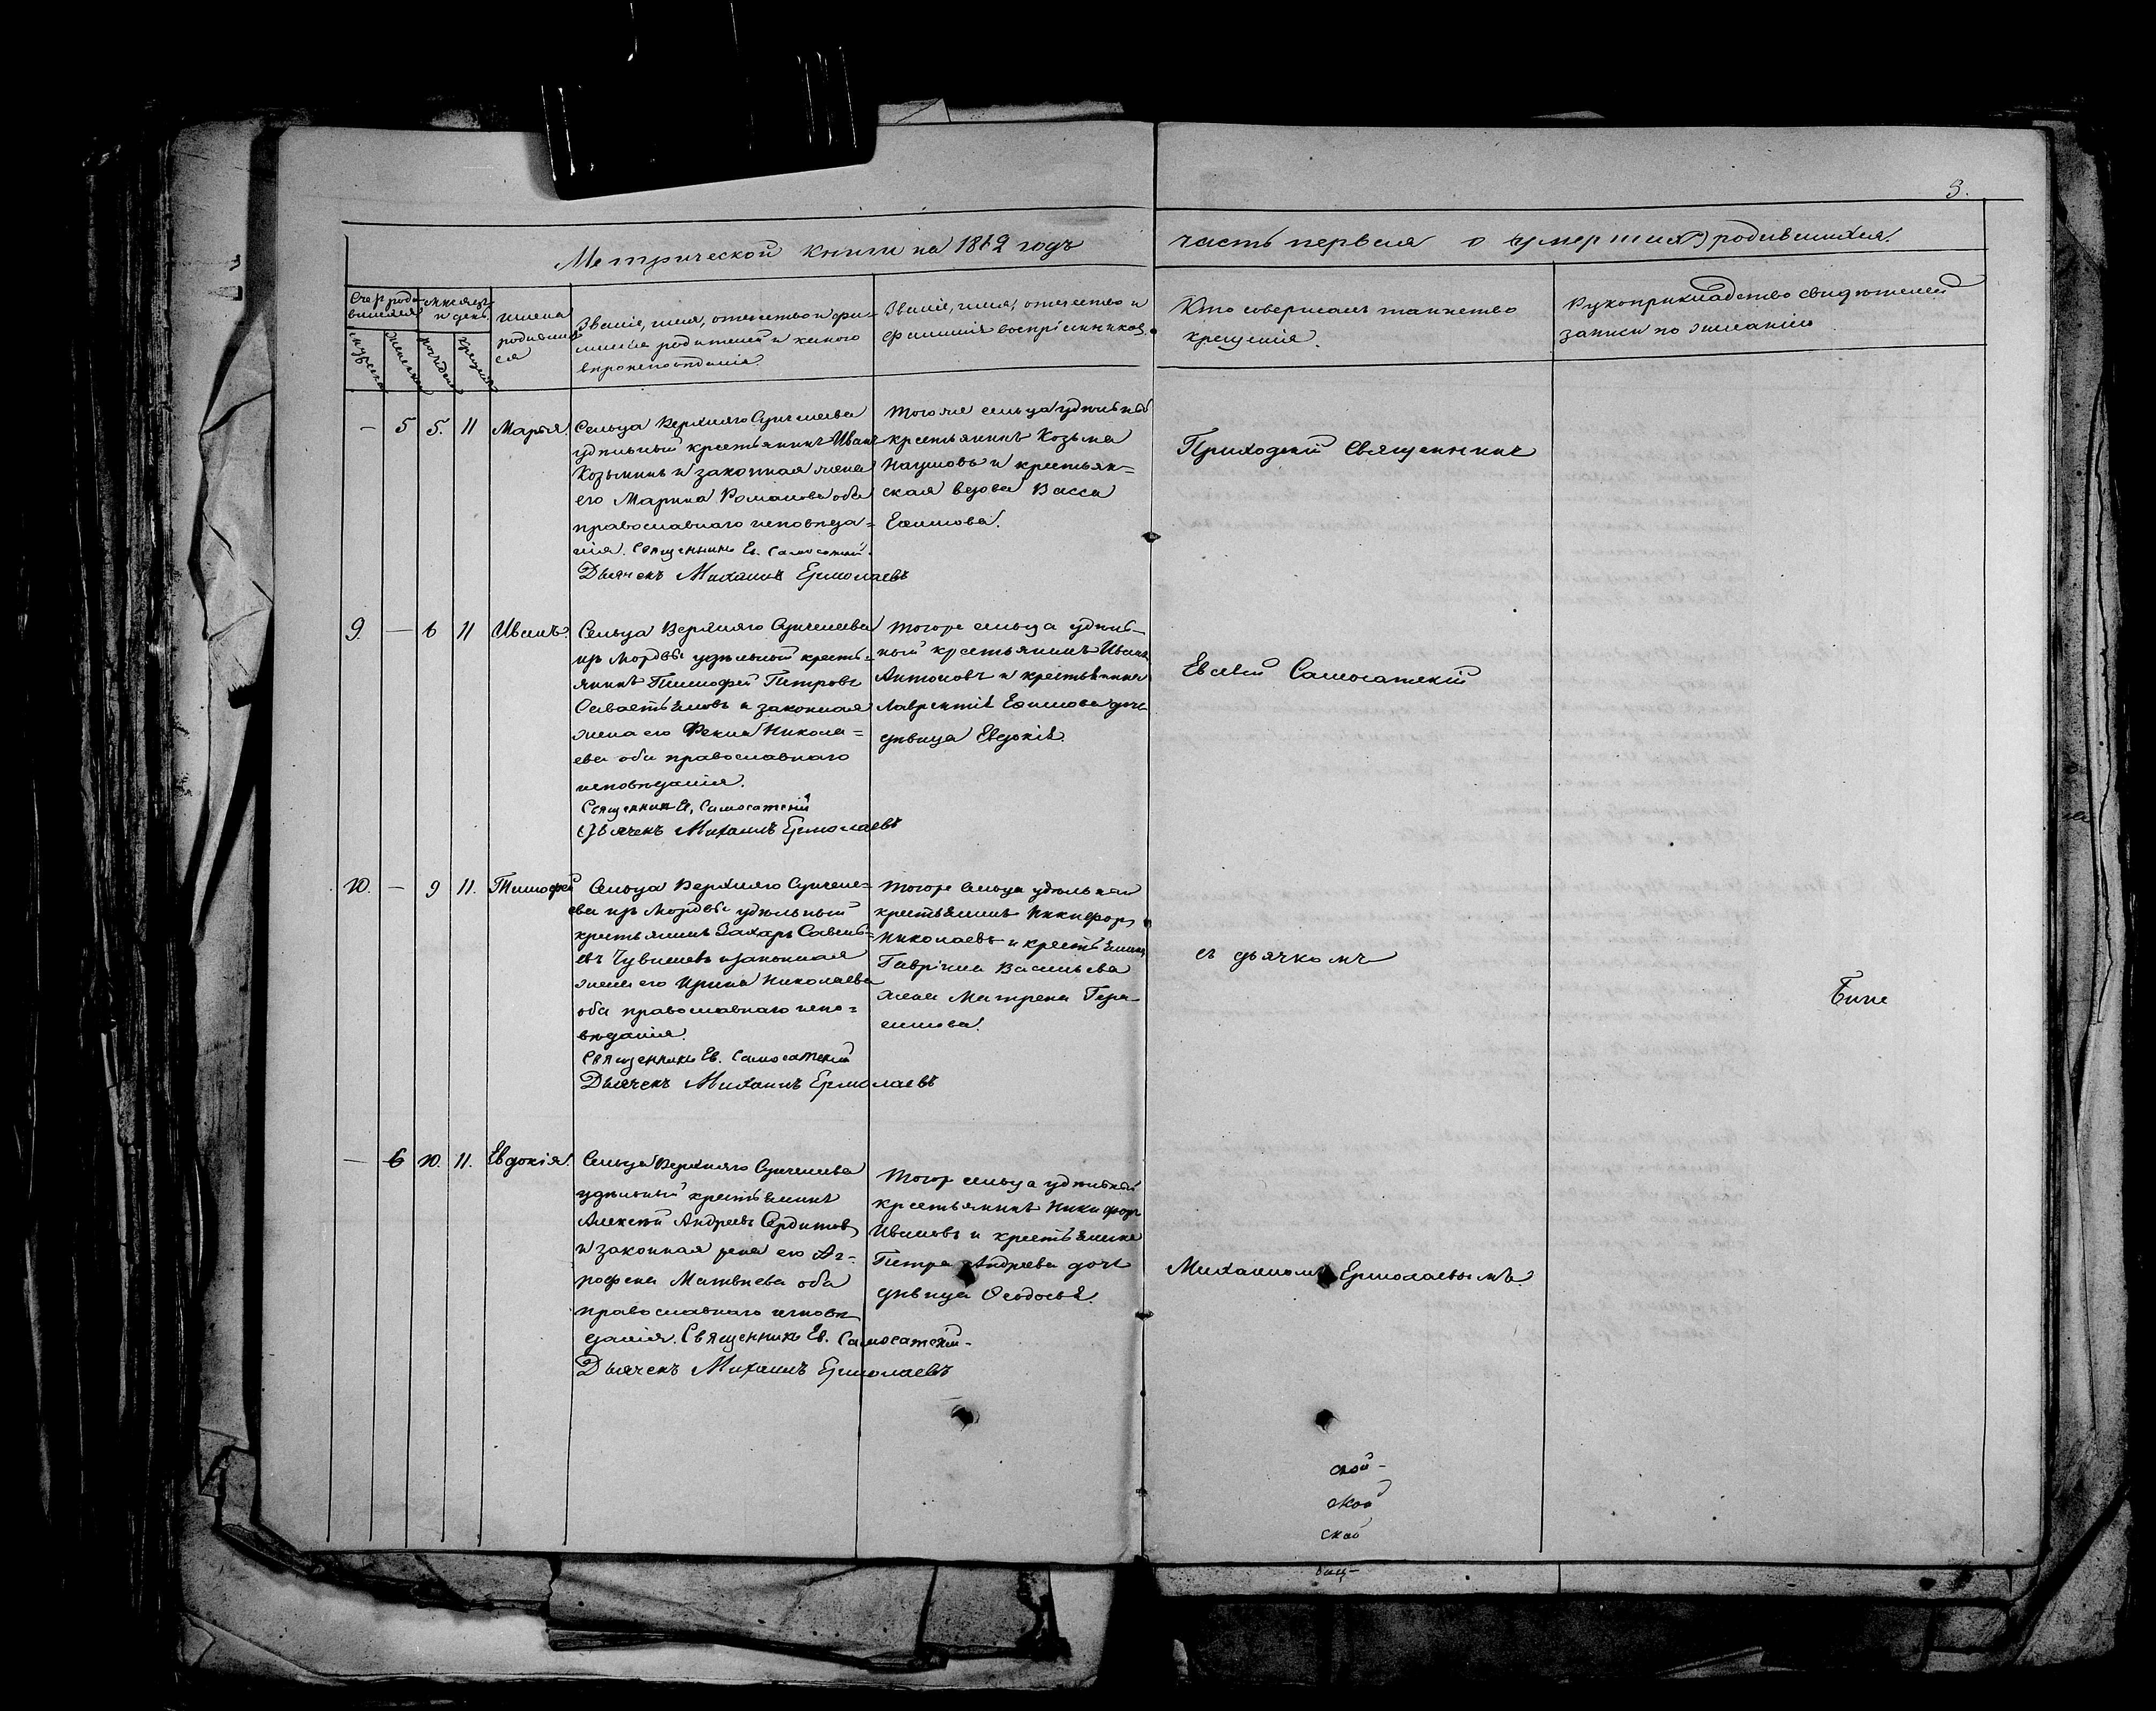 3.
Метрической книги на 1812 годъ
часть первая о умершихъ) родившихся.
Счетъ роди-
вшихся
мѣсяцъ
и день
имена
родивших
ся
Званіе, имя, отчество и фа-
милія родителей и какого
вѣроисповѣданія.
Званіе, имя, отчество и
фамилія воспріемниковъ.
Кто совершалъ таинство
крещенія.
Рукоприкладство свидѣтелей
записи по желанію
мужеска
женска
рожденія
крещенія
— 5 5. 11 Марья.
Сельца Верхняго Сунчелеева
удѣльный крестьянинъ Иванъ
Козьминъ и законная жена
его Марина Романова оба
православнаго исповѣда=
нія. Священникъ Ев. Самосатскій.
Дьячекъ Михаилъ Ермолаевъ
Тогоже сельца удѣльный
крестьянинъ Козьма
Наумовъ и крестьян=
ская вдова Васса
Ефимова.
Приходскій Священникъ
9. — 6 11 Иванъ.
Сельца Верхняго Сунчелеева
изъ Мордвы удѣльный кресть=
янинъ Тимофей Петровъ
Севастьяновъ и законная
жена его Фекла Никола=
ева оба православнаго
исповѣданія.
Священникъ Ев. Самосатскій
Дьячекъ Михаилъ Ермолаевъ
Тогоже сельца удѣль-
ный крестьянинъ Иванъ
Антоновъ и крестьянина
Лаврентія Ефимова дочь
дѣвица Евдокія.
Евсевій Самосатскій
10. — 9 11. Тимофей
Сельца Верхняго Сунчеле=
ева изъ Мордвы удѣльный
крестьянинъ Захаръ Савель=
евъ и законная
жена его Ирина Николаева
оба православнаго испо=
вѣданія.
Священникъ Ев. Самосатскій
Дьячекъ Михаилъ Ермолаевъ
Тогоже сельца удѣльный
крестьянинъ Никифоръ
Николаевъ и крестьянина
Гаврила Васильева
жена Матрена Гера-
симова.
съ дьячкомъ
— 6 10. 11. Евдокія.
Сельца Верхняго Сунчелеева
удѣльный крестьянинъ
Алексѣй Андреевъ Сердитовъ
и законная жена его Аг-
рофена Матвѣева оба
православнаго исповѣ
данія. Священникъ Ев. Самосатскій-
Дьячекъ Михаилъ Ермолаевъ
Тогоже сельца удѣльный
крестьянинъ Никифоръ
Ивановъ и крестьянина
Петра Андреева дочь
дѣвица Ѳеодосья.
Михаиломъ Ермолаевымъ.
ской-
ской
ской